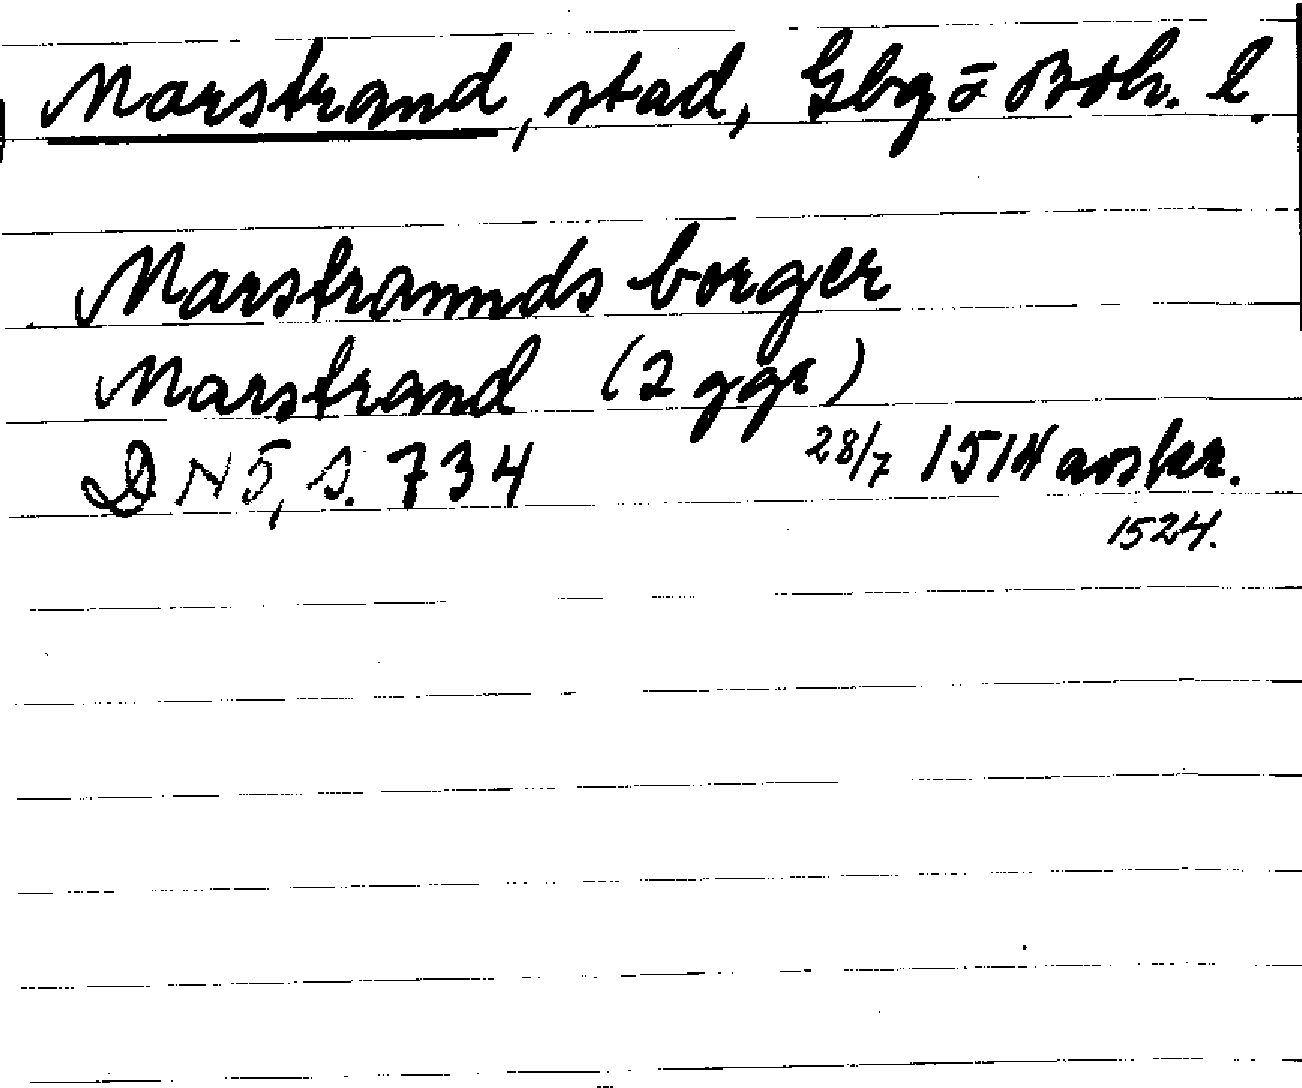 Marstrand, stad, Gbg o Boh. l.
Marstrannds borger
Marstrand (2 ggr)
DN 5, s. 734 28/7 1514 avskr.
1524.